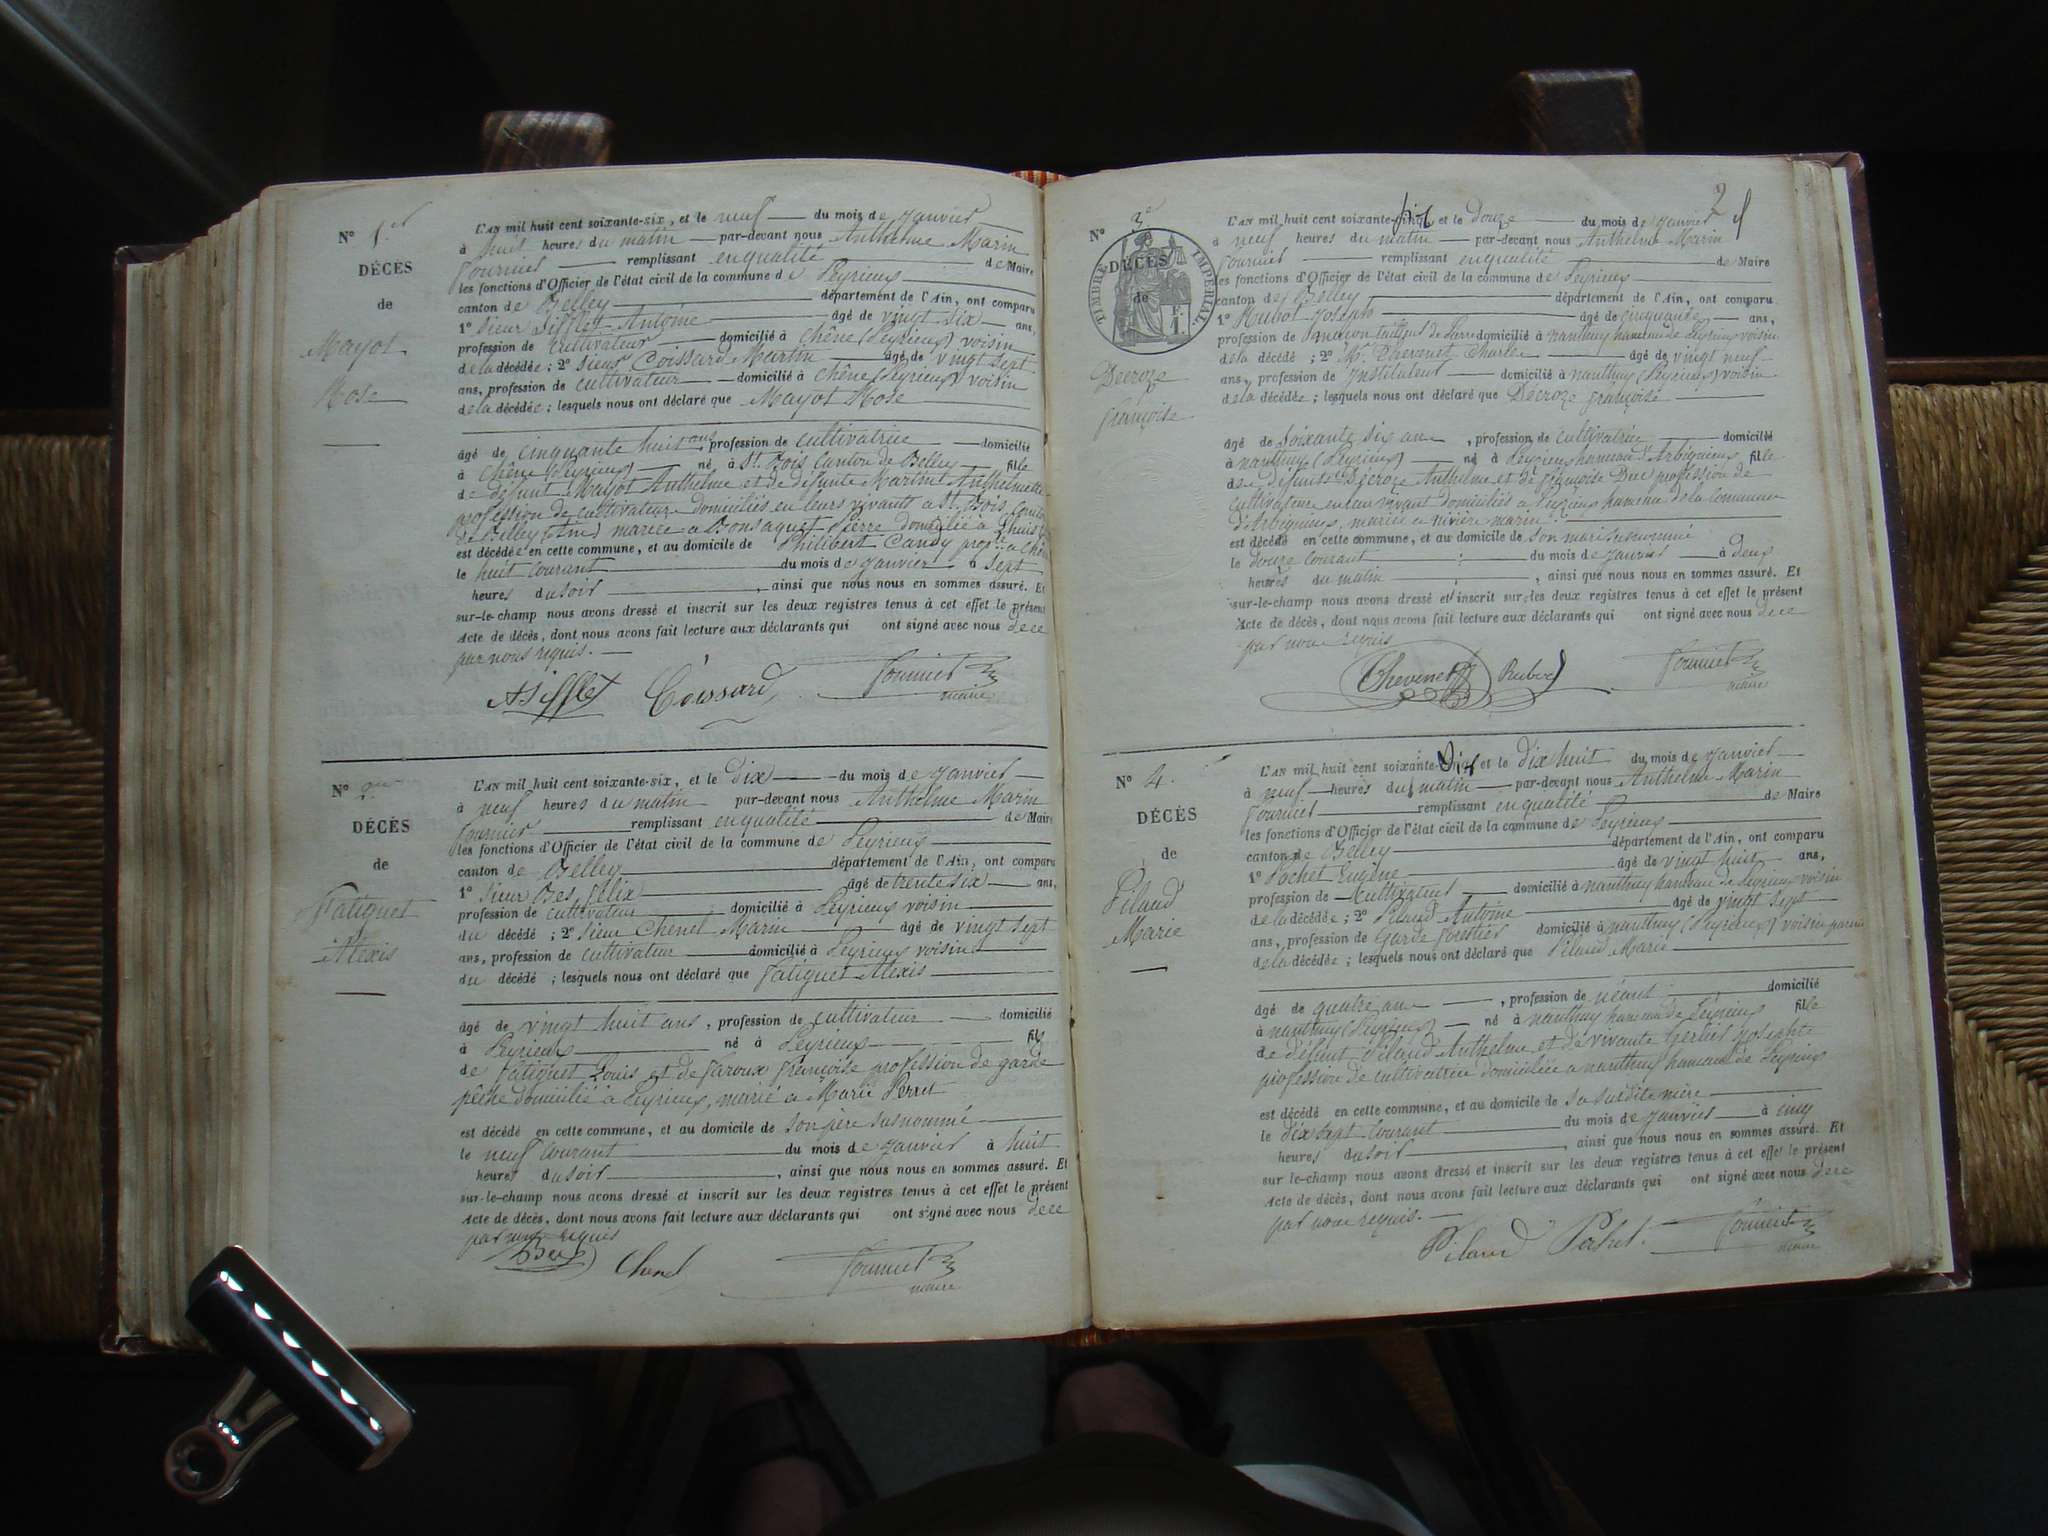 N° 1er
DÉCÈS
de
Mayot
Rose
L'AN mil huit cent soixante-six, et le neuf du mois de Janvier
à huit heures du matin par-devant nous Anthelme Marin
Fournier remplissant en qualité de Maire
les fonctions d'Officier de l'état civil de la commune de Peyrieux
canton de Belley département de l'Ain, ont comparu
1° Sieur Sifflet Antoine âgé de vingt six ans,
profession de cultivateur domicilié à Chêne (Peyrieux) voisin
de la décédée ; 2° Sieur Coissard Martin âgé de vingt sept
ans, profession de cultivateur domicilié à Chêne (Peyrieux) voisin
de la décédée ; lesquels nous ont déclaré que Mayot Rose
âgé de cinquante huit ans profession de cultivatrice domicilié
à Chêne (Peyrieux) né à St. Bois Canton de Belley fille
de défunt Mayot Anthelme et de défunte Martin Anthelmette
profession de cultivateurs domiciliés en leurs vivants a St. Bois Canton
de Belley (Ain) mariée a Bonsaquet Pierre domicilié a
est décédée en cette commune, et au domicile de Philibert Candy
le huit courant du mois de Janvier à sept
heures du soir, ainsi que nous nous en sommes assuré. Et
sur-le-champ nous avons dressé et inscrit sur les deux registres tenus à cet effet le présent
Acte de décès, dont nous avons fait lecture aux déclarants qui ont signé avec nous de ce
par nous requis.
ASifflet Coissard Fournier
maire
N° 2
DÉCÈS
de
Fatiguet
Alexis
L'AN mil huit cent soixante-six, et le dix du mois de Janvier
à neuf heures du matin par-devant nous Anthelme Marin
Fournier remplissant en qualité de Maire
les fonctions d'Officier de l'état civil de la commune de Peyrieux
canton de Belley département de l'Ain, ont comparu
1° Sieur Bes Félix âgé de trente six ans,
profession de cultivateur domicilié à Peyrieux voisin
du décédé ; 2° Sieur Chenel Marin âgé de vingt sept
ans, profession de cultivateur domicilié à Peyrieux voisin
du décédé ; lesquels nous ont déclaré que Fatiguet Alexis
âgé de vingt huit ans, profession de cultivateur domicilié
à Peyrieux né à Peyrieux fils
de Fatiguet Louis et de Faroux Françoise profession de garde
pêche domicilié à Peyrieux, marié a Marie Perret
est décédé en cette commune, et au domicile de son père susnommé
le neuf courant du mois de Janvier à huit
heures du soir, ainsi que nous nous en sommes assuré. Et
sur-le-champ nous avons dressé et inscrit sur les deux registres tenus à cet effet le présent
Acte de décès, dont nous avons fait lecture aux déclarants qui ont signé avec nous de ce
par nous requis
Bes Chenel Fournier
maire
2
N° 3e
TIMBRE IMPÉRIAL
1 F.
DÉCÈS
de
Decroze
Françoise
L'AN mil huit cent soixante-six et le Douze du mois de Janvier
à neuf heures du matin par-devant nous Anthelme Marin
Fournier remplissant en qualité de Maire
les fonctions d'Officier de l'état civil de la commune de Peyrieux
canton de Belley département de l'Ain, ont comparu
1° Rubod Joseph âgé de cinquante, ans,
profession de maçon tailleur de Pierre domicilié à nanthuy hameau de Peyrieux voisin
de la décédé ; 2° Mr. Thevenet Charles âgé de vingt neuf
ans, profession de Instituteur domicilié à nanthuy (Peyrieux) voisin
de la décédée ; lesquels nous ont déclaré que Decroze Françoise
âgé de Soixante six ans, profession de cultivatrice domicilié
à nanthuy (Peyrieux) né à Peyrieux hameau d'Arbignieux fille
de défunts Decroze Anthelme et de Françoise Duc profession de
cultivateurs en leur vivant domiciliés a Peyrieux hameau de la Commune
d'Arbignieux, mariée a Rivière marin
est décédé en cette commune, et au domicile de son mari susnommé
le douze courant du mois de Janvier à deux
heures du matin, ainsi que nous nous en sommes assuré. Et
sur-le-champ nous avons dressé et inscrit sur les deux registres tenus à cet effet le présent
Acte de décès, dont nous avons fait lecture aux déclarants qui ont signé avec nous de ce
par nous requis
Thevenet Rubod Fournier
maire
N° 4.
DÉCÈS
de
Pilaud
Marie
L'AN mil huit cent soixante-six et le dix huit du mois de Janvier
à neuf heures du matin par-devant nous Anthelme Marin
Fournier remplissant en qualité de Maire
les fonctions d'Officier de l'état civil de la commune de Peyrieux
canton de Belley département de l'Ain, ont comparu
1° Pochet Eugène âgé de vingt huit ans,
profession de Cultivateur domicilié à nanthuy hameau de Peyrieux voisin
de la décédée ; 2° Pilaud Antoine âgé de vingt sept
ans, profession de Garde forestier domicilié à nanthuy (Peyrieux) voisin
de la décédée ; lesquels nous ont déclaré que Pilaud Marie
âgé de quatre ans, profession de néant domicilié
à nanthuy (Peyrieux) né à nanthuy hameau de Peyrieux fille
de défunt Pilaud Anthelme et de vivante Herbis Josephte
profession de cultivatrice domiciliée a nanthuy hameau de Peyrieux
est décédé en cette commune, et au domicile de sa susdite mère
le dix sept courant du mois de Janvier à cinq
heures du soir, ainsi que nous nous en sommes assuré. Et
sur-le-champ nous avons dressé et inscrit sur les deux registres tenus à cet effet le présent
Acte de décès, dont nous avons fait lecture aux déclarants qui ont signé avec nous de ce
par nous requis.
Pilaud Pochet. Fournier
maire